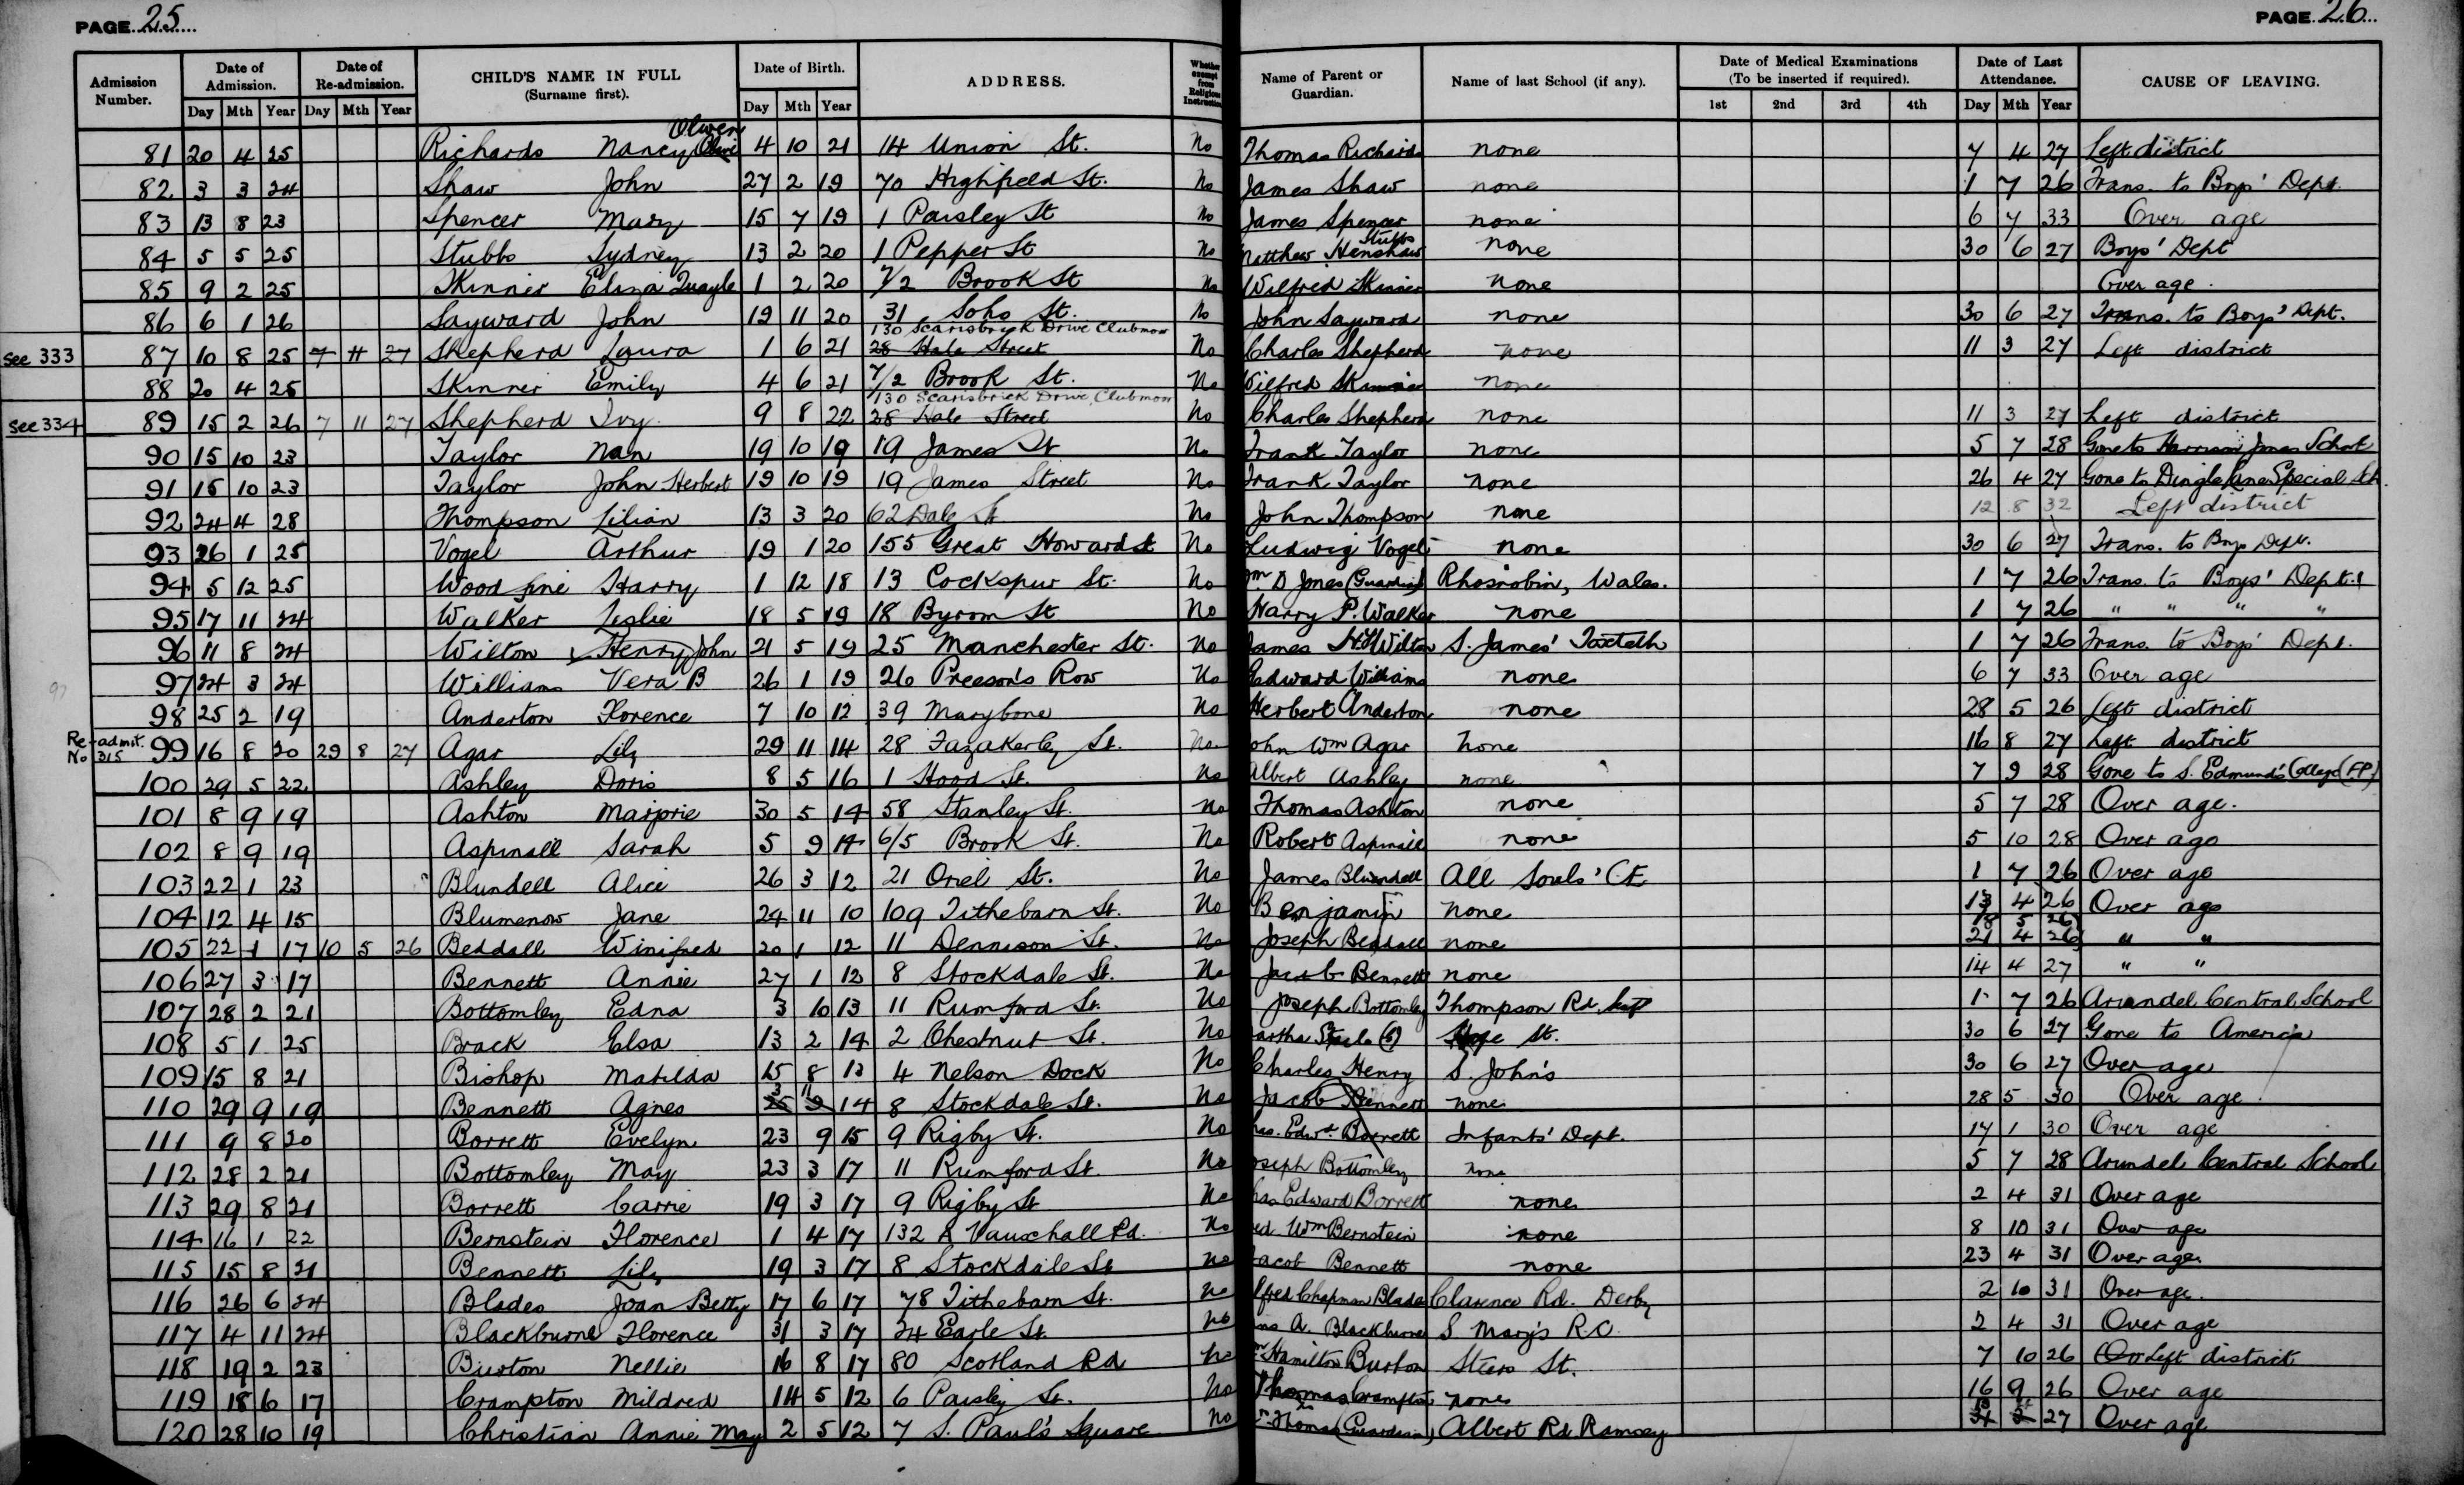 PAGE 25
PAGE 26
Admission Number. Date of Admission. Date of Re-admission. CHILD'S NAME IN FULL (Surname first). Date of Birth. ADDRESS. Whether exempt from Religious Instruction Name of Parent or Guardian. Name of last School (if any). Date of Medical Examinations (To be inserted if required). Date of Last Attendance. CAUSE OF LEAVING.
Day Mth Year Day Mth Year Day Mth Year 1st 2nd 3rd 4th Day Mth Year
81 20 4 25 Richards Nancy Olwen Olive 4 10 21 14 Union St. No Thomas Richards none 7 4 27 Left district
82 3 3 24 Shaw John 27 2 19 70 Highfield St. No James Shaw none 1 7 26 Trans. to Boys' Dept.
83 13 8 23 Spencer Mary 15 7 19 1 Paisley St No James Spencer none 6 7 33 Over age
84 5 5 25 Stubbs Sydney 13 2 20 1 Pepper St No Matthew Henshaw Stubbs none 30 6 27 Boys' Dept
85 9 2 25 Skinner Eliza Quayle 1 2 20 7/2 Brook St No Wilfred Skinner none Over age.
86 6 1 26 Sayward John 19 11 20 31 Soho St. No John Sayward none 30 6 27 Trans. to Boys' Dept.
See 333 87 10 8 25 7 11 27 Shepherd Laura 1 6 21 130 Scarisbrick Drive Clubmoor 28 Hale Street No Charles Shepherd none 11 3 27 Left district
88 20 4 25 Skinner Emily 4 6 21 7/2 Brook St. No Wilfred Skinner none
See 334 89 15 2 26 7 11 27 Shepherd Ivy 9 8 22 130 Scarisbrick Drive, Clubmoor 28 Hale Street No Charles Shepherd none 11 3 27 Left district
90 15 10 23 Taylor Nan 19 10 19 19 James St No Frank Taylor none 5 7 28 Gone to Harrison Jones School
91 15 10 23 Taylor John Herbert 19 10 19 19 James Street No Frank Taylor none 26 4 27 Gone to Dingle Lane Special Sch.
92 24 4 28 Thompson Lilian 13 3 20 62 Dale St No John Thompson none 12 8 32 Left district
93 26 1 25 Vogel Arthur 19 1 20 155 Great Howard St No Ludwig Vogel none 30 6 27 Trans. to Boys Dept.
94 5 12 25 Woodfine Harry 1 12 18 13 Cockspur St. No Wm. D Jones (Guardian) Rhosrobin, Wales. 1 7 26 Trans. to Boys' Dept.
95 17 11 24 Walker Leslie 18 5 19 18 Byrom St No Harry P. Walker none 1 7 26 " " " "
96 11 8 24 Wilton Henry John 21 5 19 25 Manchester St. No James Wilton S. James' Toxteth 1 7 26 Trans. to Boys' Dept.
97 24 3 24 Williams Vera B 26 1 19 26 Preeson's Row No Edward Williams none 6 7 33 Over age
98 25 2 19 Anderton Florence 7 10 12 39 Marybone No Herbert Anderton none 28 5 26 Left district
Re-admit. No 315 99 16 8 20 29 8 27 Agar Lily 29 11 14 28 Fazakerley St. No. John Wm Agar none 16 8 27 Left district
100 29 5 22 Ashley Doris 8 5 16 1 Hood St. No Albert Ashley none 7 9 28 Gone to S. Edmund's College (FP)
101 8 9 19 Ashton Marjorie 30 5 14 58 Stanley St. No Thomas Ashton none 5 7 28 Over age.
102 8 9 19 Aspinall Sarah 5 9 14 6/5 Brook St. No Robert Aspinall none 5 10 28 Over age
103 22 1 23 Blundell Alice 26 3 12 21 Oriel St. No James Blundell All Souls' C.E 1 7 26 Over age
104 12 4 15 Blumenow Jane 24 11 10 109 Tithebarn St. No Benjamin none 13 4 26 Over age
105 22 1 17 10 5 26 Beddall Winifred 20 1 12 11 Dennison St. No Joseph Beddall none 18 5 26 21 4 26 " "
106 27 3 17 Bennett Annie 27 1 13 8 Stockdale St. No Jacob Bennett none 14 4 27 " "
107 28 2 21 Bottomley Edna 3 10 13 11 Rumford St. No Joseph Bottomley Thompson Rd. 1 7 26 Arundel Central School
108 5 1 25 Brack Elsa 13 2 14 2 Chestnut St. No Martha Steele (G) Hope St. 30 6 27 Gone to America
109 15 8 21 Bishop Matilda 15 8 13 4 Nelson Dock No Charles Henry S. John's 30 6 27 Over age
110 29 9 19 Bennett Agnes 3 11 25 9 14 8 Stockdale St. No Jacob Bennett none 28 5 30 Over age.
111 9 8 20 Borrett Evelyn 23 9 15 9 Rigby St. No Chas. Edwd Borrett Infants' Dept. 17 1 30 Over age
112 28 2 21 Bottomley May 23 3 17 11 Rumford St No Joseph Bottomley none 5 7 28 Arundel Central School
113 29 8 21 Borrett Carrie 19 3 17 9 Rigby St No Chas Edward Borrett none 2 4 31 Over age
114 16 1 22 Bernstein Florence 1 4 17 132 A Vauxhall Rd. No Wm Bernstein none 8 10 31 Over age
115 15 8 21 Bennett Lily 19 3 17 8 Stockdale St No Jacob Bennett none 23 4 31 Over age.
116 26 6 24 Blades Joan Betty 17 6 17 78 Tithebarn St. No Alfred Chapman Blades Clarence Rd. Derby 2 10 31 Over age.
117 4 11 24 Blackburne Florence 31 3 17 24 Earle St. No A. Blackburne S Mary's R.C. 2 4 31 Over age
118 19 2 23 Burton Nellie 16 8 17 80 Scotland Rd No Hamilton Burton Steers St. 7 10 26 Left district
119 18 6 17 Crompton Mildred 14 5 12 6 Paisley St. No Thomas Crompton none 16 9 26 Over age
120 28 10 19 Christian Annie May 2 5 12 7 S. Paul's Square No Thomas (Guardian) Albert Rd Ramsey 27 Over age